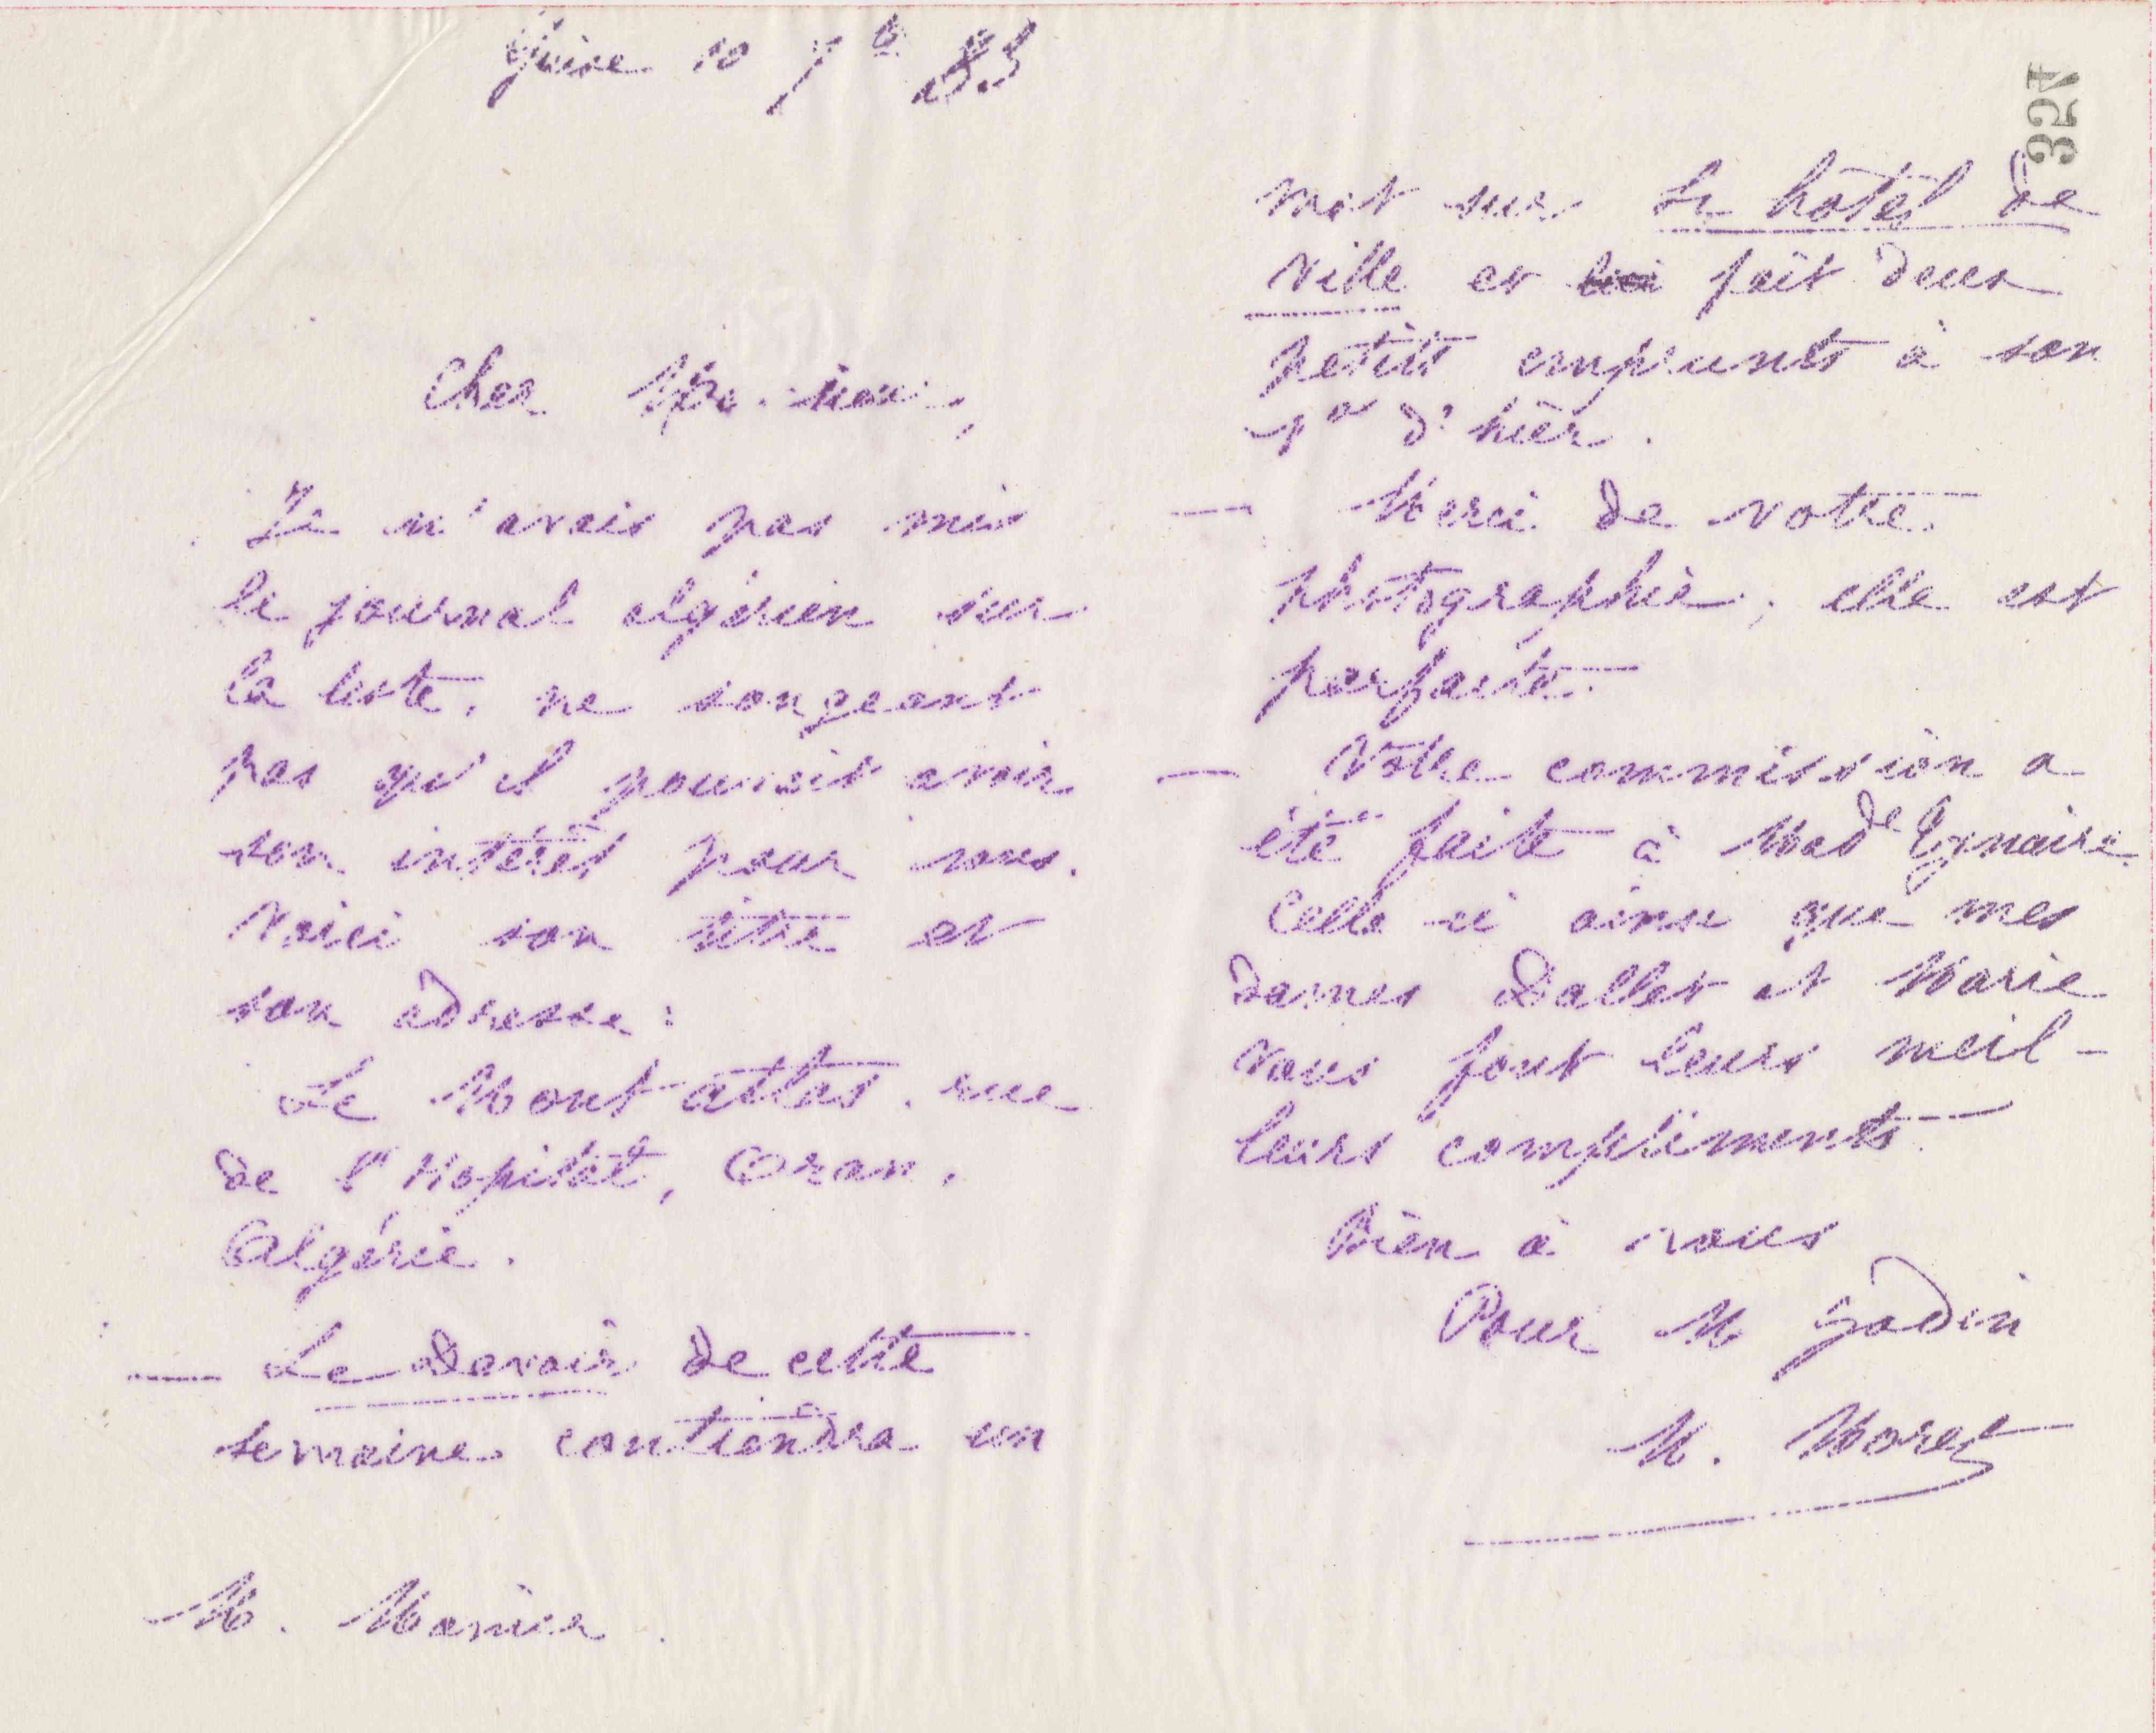 Guise 10 7b 83
Cher Monsieur,
Je n'avais pas mis
le journal algérien sur
la liste, ne songeant
pas qu'il pouvait avoir
son intérêt pour vous.
Voici son titre et
son adresse :
Le Mont atlas, rue
de l'Hopital, Oran,
Algérie.
— Le Devoir de cette
semaine contiendra un
M.
324
mot sur Le hôtel de
ville et fait deux
petits emprunts à son
no d'hier.
— Merci de votre
photographie, elle est
parfaite.
— Votre commission a
été faite à Made
Celle-ci ainsi que mes
dames Dallet et Marie
vous font leurs meil-
leurs compliments.
Bien à vous
Pour M Godin
M. Moret